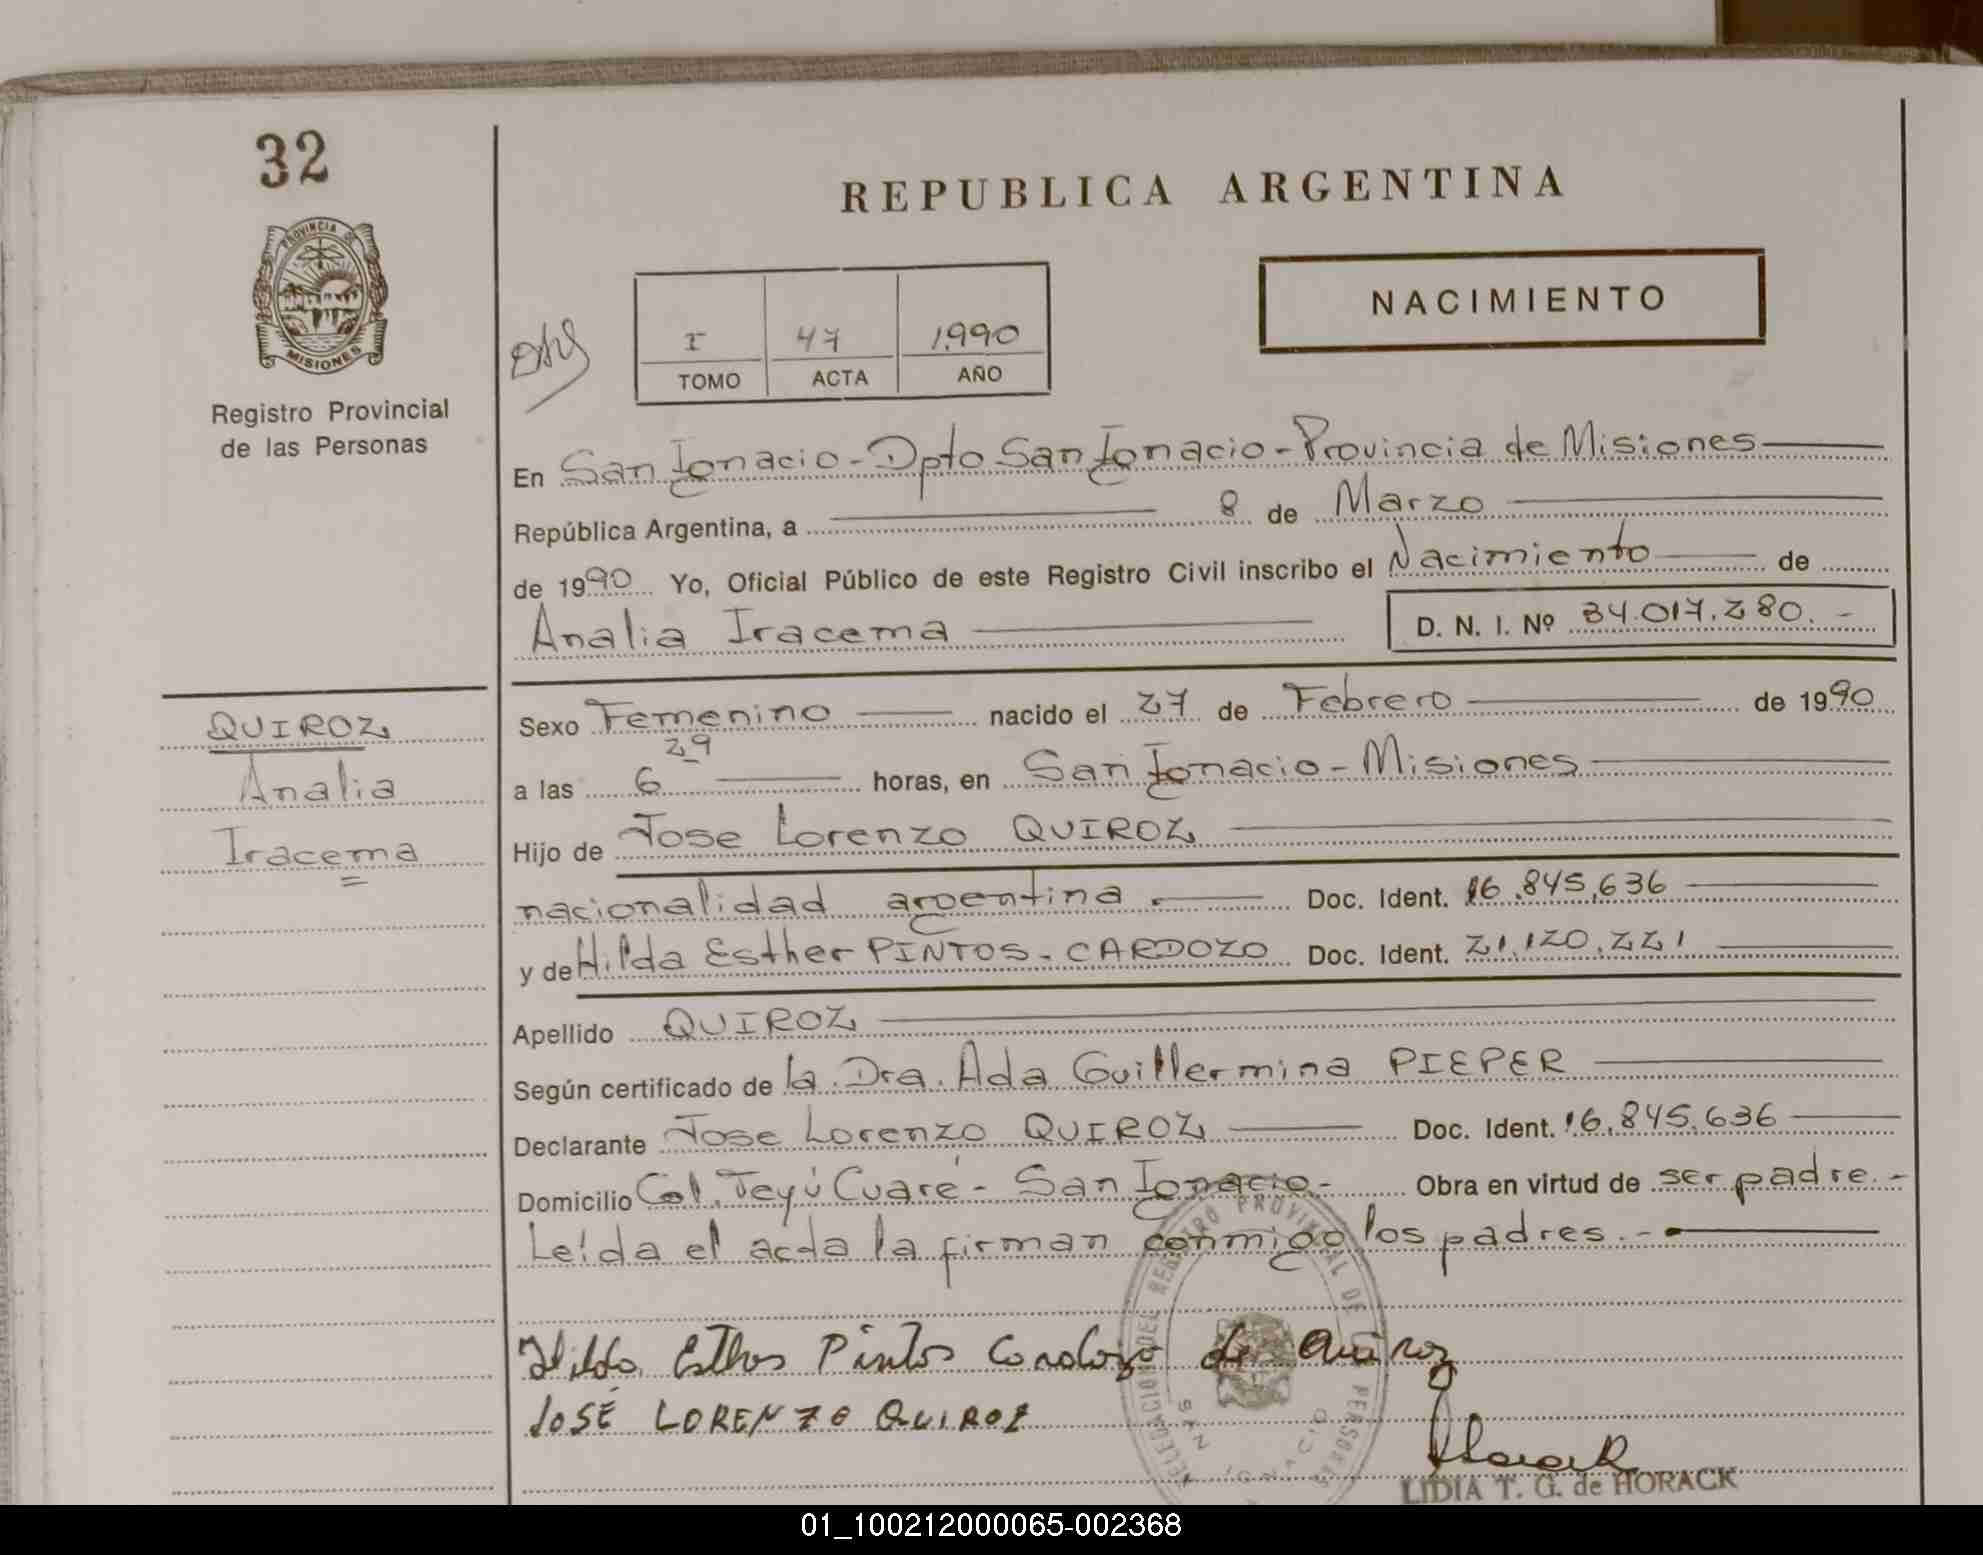 32
PROVINCIA DE
MISIONES
Registro Provincial
de las Personas
REPUBLICA ARGENTINA
NACIMIENTO
I 47 1.990
TOMO ACTA AÑO
En San Ignacio - Dpto San Ignacio - Provincia de Misiones
República Argentina, a 8 de Marzo
de 1990 Yo, Oficial Público de este Registro Civil inscribo el Nacimiento de
Analia Iracema D. N. I. Nº 34.017.280.-
QUIROZ
Analia
Iracema
Sexo Femenino nacido el 27 de Febrero de 1990
a las 6 29 horas, en San Ignacio - Misiones
Hijo de Jose Lorenzo QUIROZ
nacionalidad argentina.- Doc. Ident. 16.845.636
y de Hilda Esther PINTOS - CARDOZO Doc. Ident. 21.120.221
Apellido QUIROZ
Según certificado de la Dra. Ada Guillermina PIEPER
Declarante Jose Lorenzo QUIROZ Doc. Ident. 16.845.636
Domicilio Col. Teyú Cuaré - San Ignacio.- Obra en virtud de ser padre.-
Leída el acta la firman conmigo los padres.-
Hilda Esther Pintos Cardozo de Quiroz
JOSÉ LORENZO QUIROZ
DELEGACION DEL REGISTRO PROVINCIAL DE PERSONAS
SAN IGNACIO
Horack
LIDIA T. G. de HORACK
01_100212000065-002368